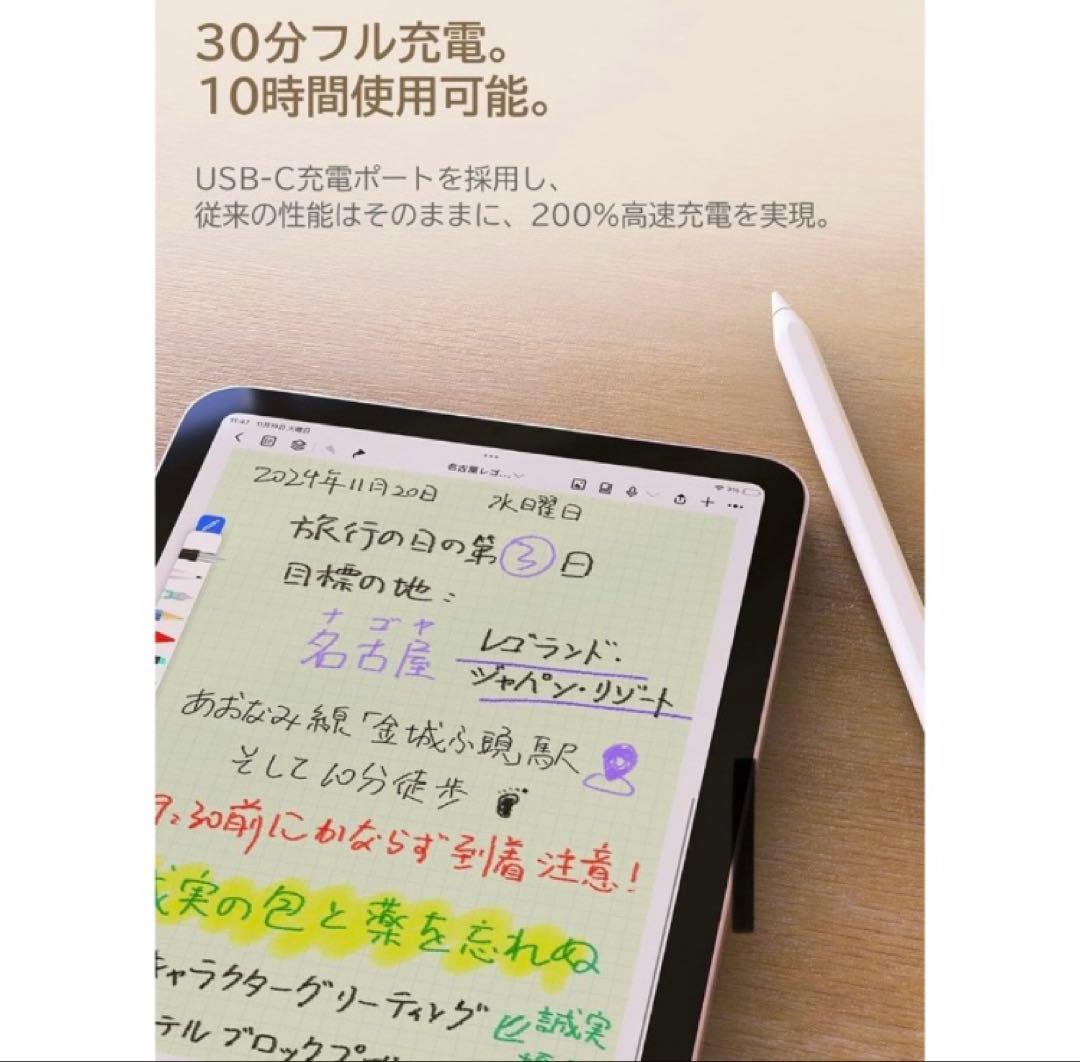 30分フル充電。
10時間使用可能。
USB-C充電ポートを採用し、
従来の性能はそのままに、200%高速充電を実現。
11:47 11月19日 火曜日
3%
名古屋レゴ...
2024年11月20日 水曜日
旅行の日の第3日
目標の地:
ナゴヤ
名古屋 レゴランド・
ジャパン・リゾート
あおなみ線「金城ふ頭」駅
そして10分徒歩
9:30前にかならず到着 注意!
実の包と薬を忘れぬ
キャラクターグリーティング
誠実
テル ブロック